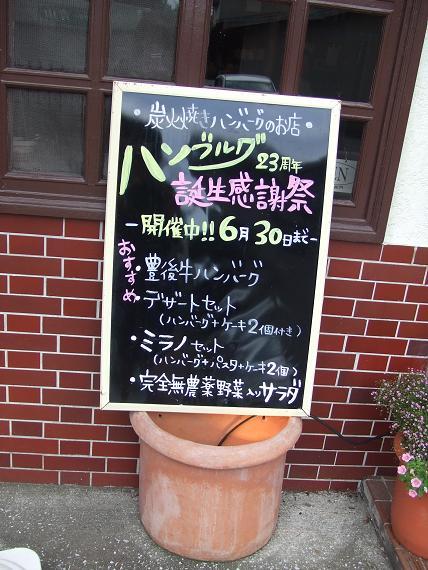 ・炭火焼きハンバーグのお店・
ハンブルグ 23周年
誕生感謝祭
ー開催中!! 6月30日までー
おすすめ
・豊後牛ハンバーグ
・デザートセット
(ハンバーグ+ケーキ2個付き)
・ミラノセット
(ハンバーグ+パスタ+ケーキ2個)
・完全無農薬野菜入りサラダ